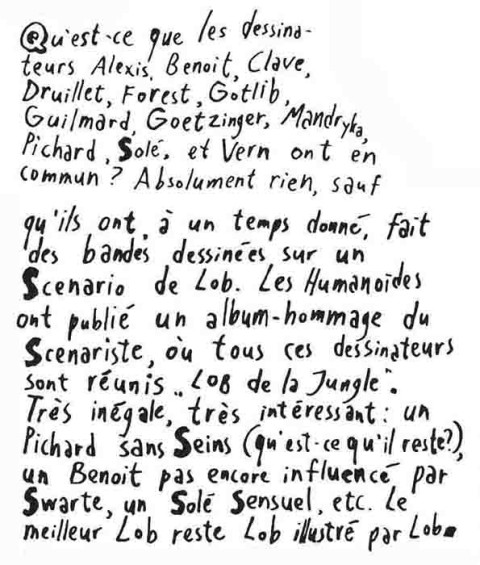 Qu'est-ce que les dessina-
teurs Alexis, Benoit, Clave,
Druillet, Forest, Gotlib,
Guilmard, Goetzinger, Mandryka,
Pichard, Solé, et Vern ont en
commun ? Absolument rien, sauf
qu'ils ont, à un temps donné, fait
des bandes dessinées sur un
Scenario de Lob. Les Humanoïdes
ont publié un album-hommage du
Scenariste, où tous ces dessinateurs
sont réunis „Lob de la Jungle".
Très inégale, très intéressant : un
Pichard sans Seins (qu'est-ce qu'il reste?),
un Benoit pas encore influencé par
Swarte, un Solé Sensuel, etc. Le
meilleur Lob reste Lob illustré par Lob.